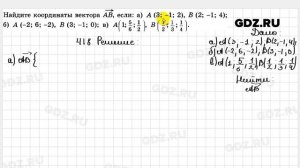 Найдите координаты вектора AB, если: а) A (3; −1; 2), B (2; −1; 4);
б) A (−2; 6; −2), B (3; −1; 0); в) A(1; 5/6; 1/2), B(1/2; 1/3; 1/4).
GDZ.RU
Дано
418 Решение
а) A(3, -1, 2), B(2, -1, 4)
б) A(-2, 6, -2), B(3, -1, 0)
а) AB {
Найти:
AB